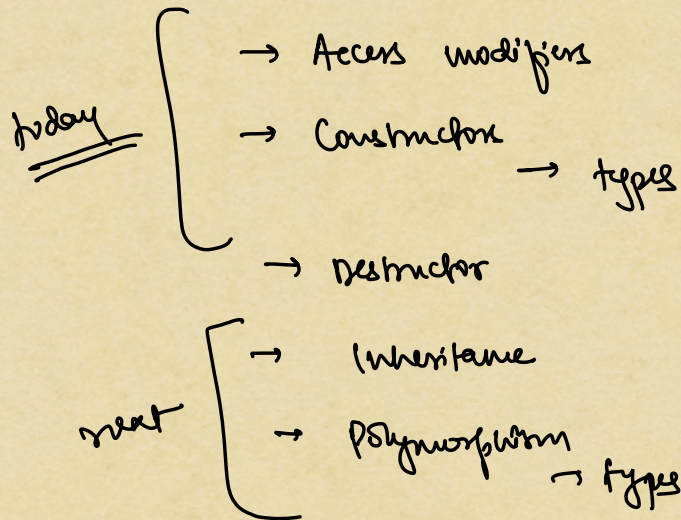 today
→ Access modifiers
→ Constructors
→ types
→ Destructor
next
→ Inheritance
→ Polymorphism
→ types